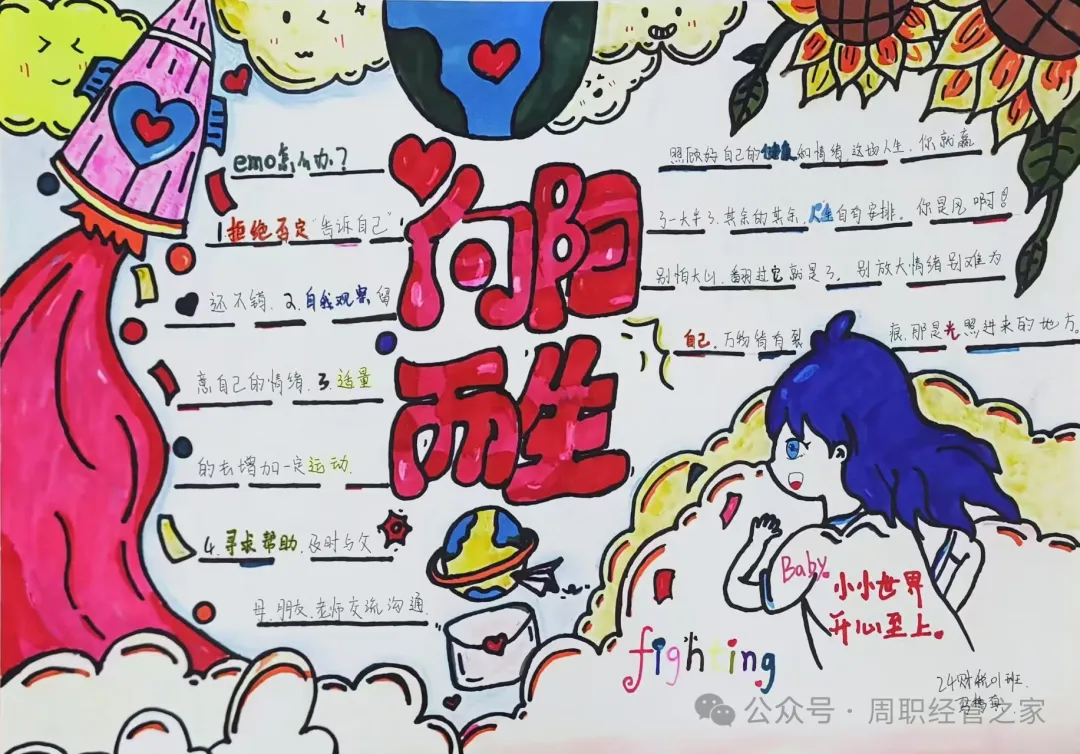 向阳
而生
emo怎么办?
1.拒绝否定"告诉自己"
还不错. 2.自我观察,留
意自己的情绪. 3.适量
的去增加一定运动.
4.寻求帮助.及时与父
母.朋友.老师交流沟通.
照顾好自己的健康和情绪,这场人生,你就赢
了一大半了.其余的其余.人生自有安排。你是风啊!
别怕大山.翻过它就是了.别放大情绪别难为
自己.万物皆有裂痕,那是光照进来的地方。
Baby.
小小世界
开心至上。
fighting
24财税01班.
公众号·周职经管之家